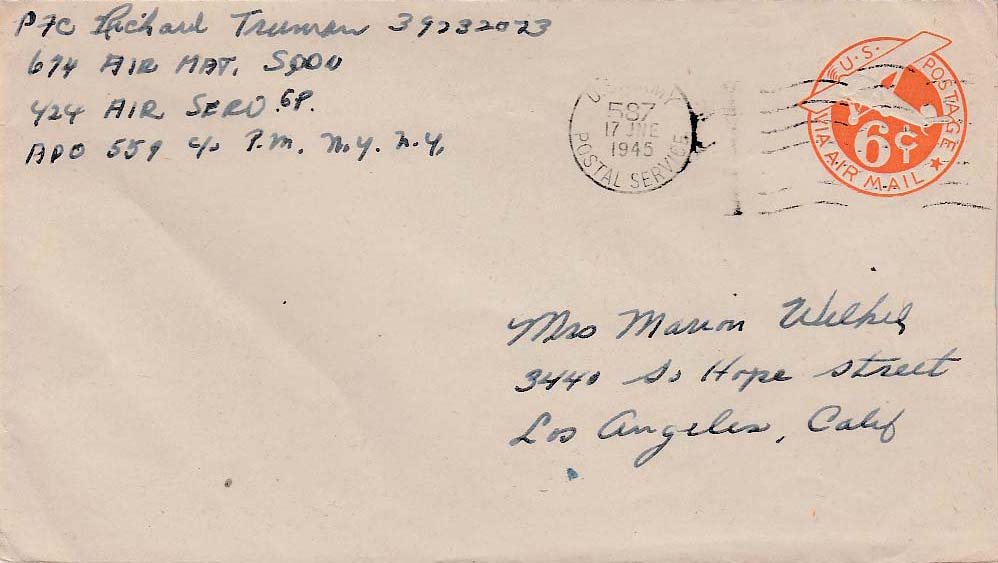 Pfc Richard Truman 39232023
674 AIR MAT. SQDN
424 AIR SERV. GP.
APO 559 c/o P.M. N.Y. N.Y.
U.S. ARMY
587
17 JNE
1945
POSTAL SERVICE
U.S. POSTAGE
6¢
VIA AIR MAIL
Mrs Marion
3440 So Hope Street
Los Angeles, Calif